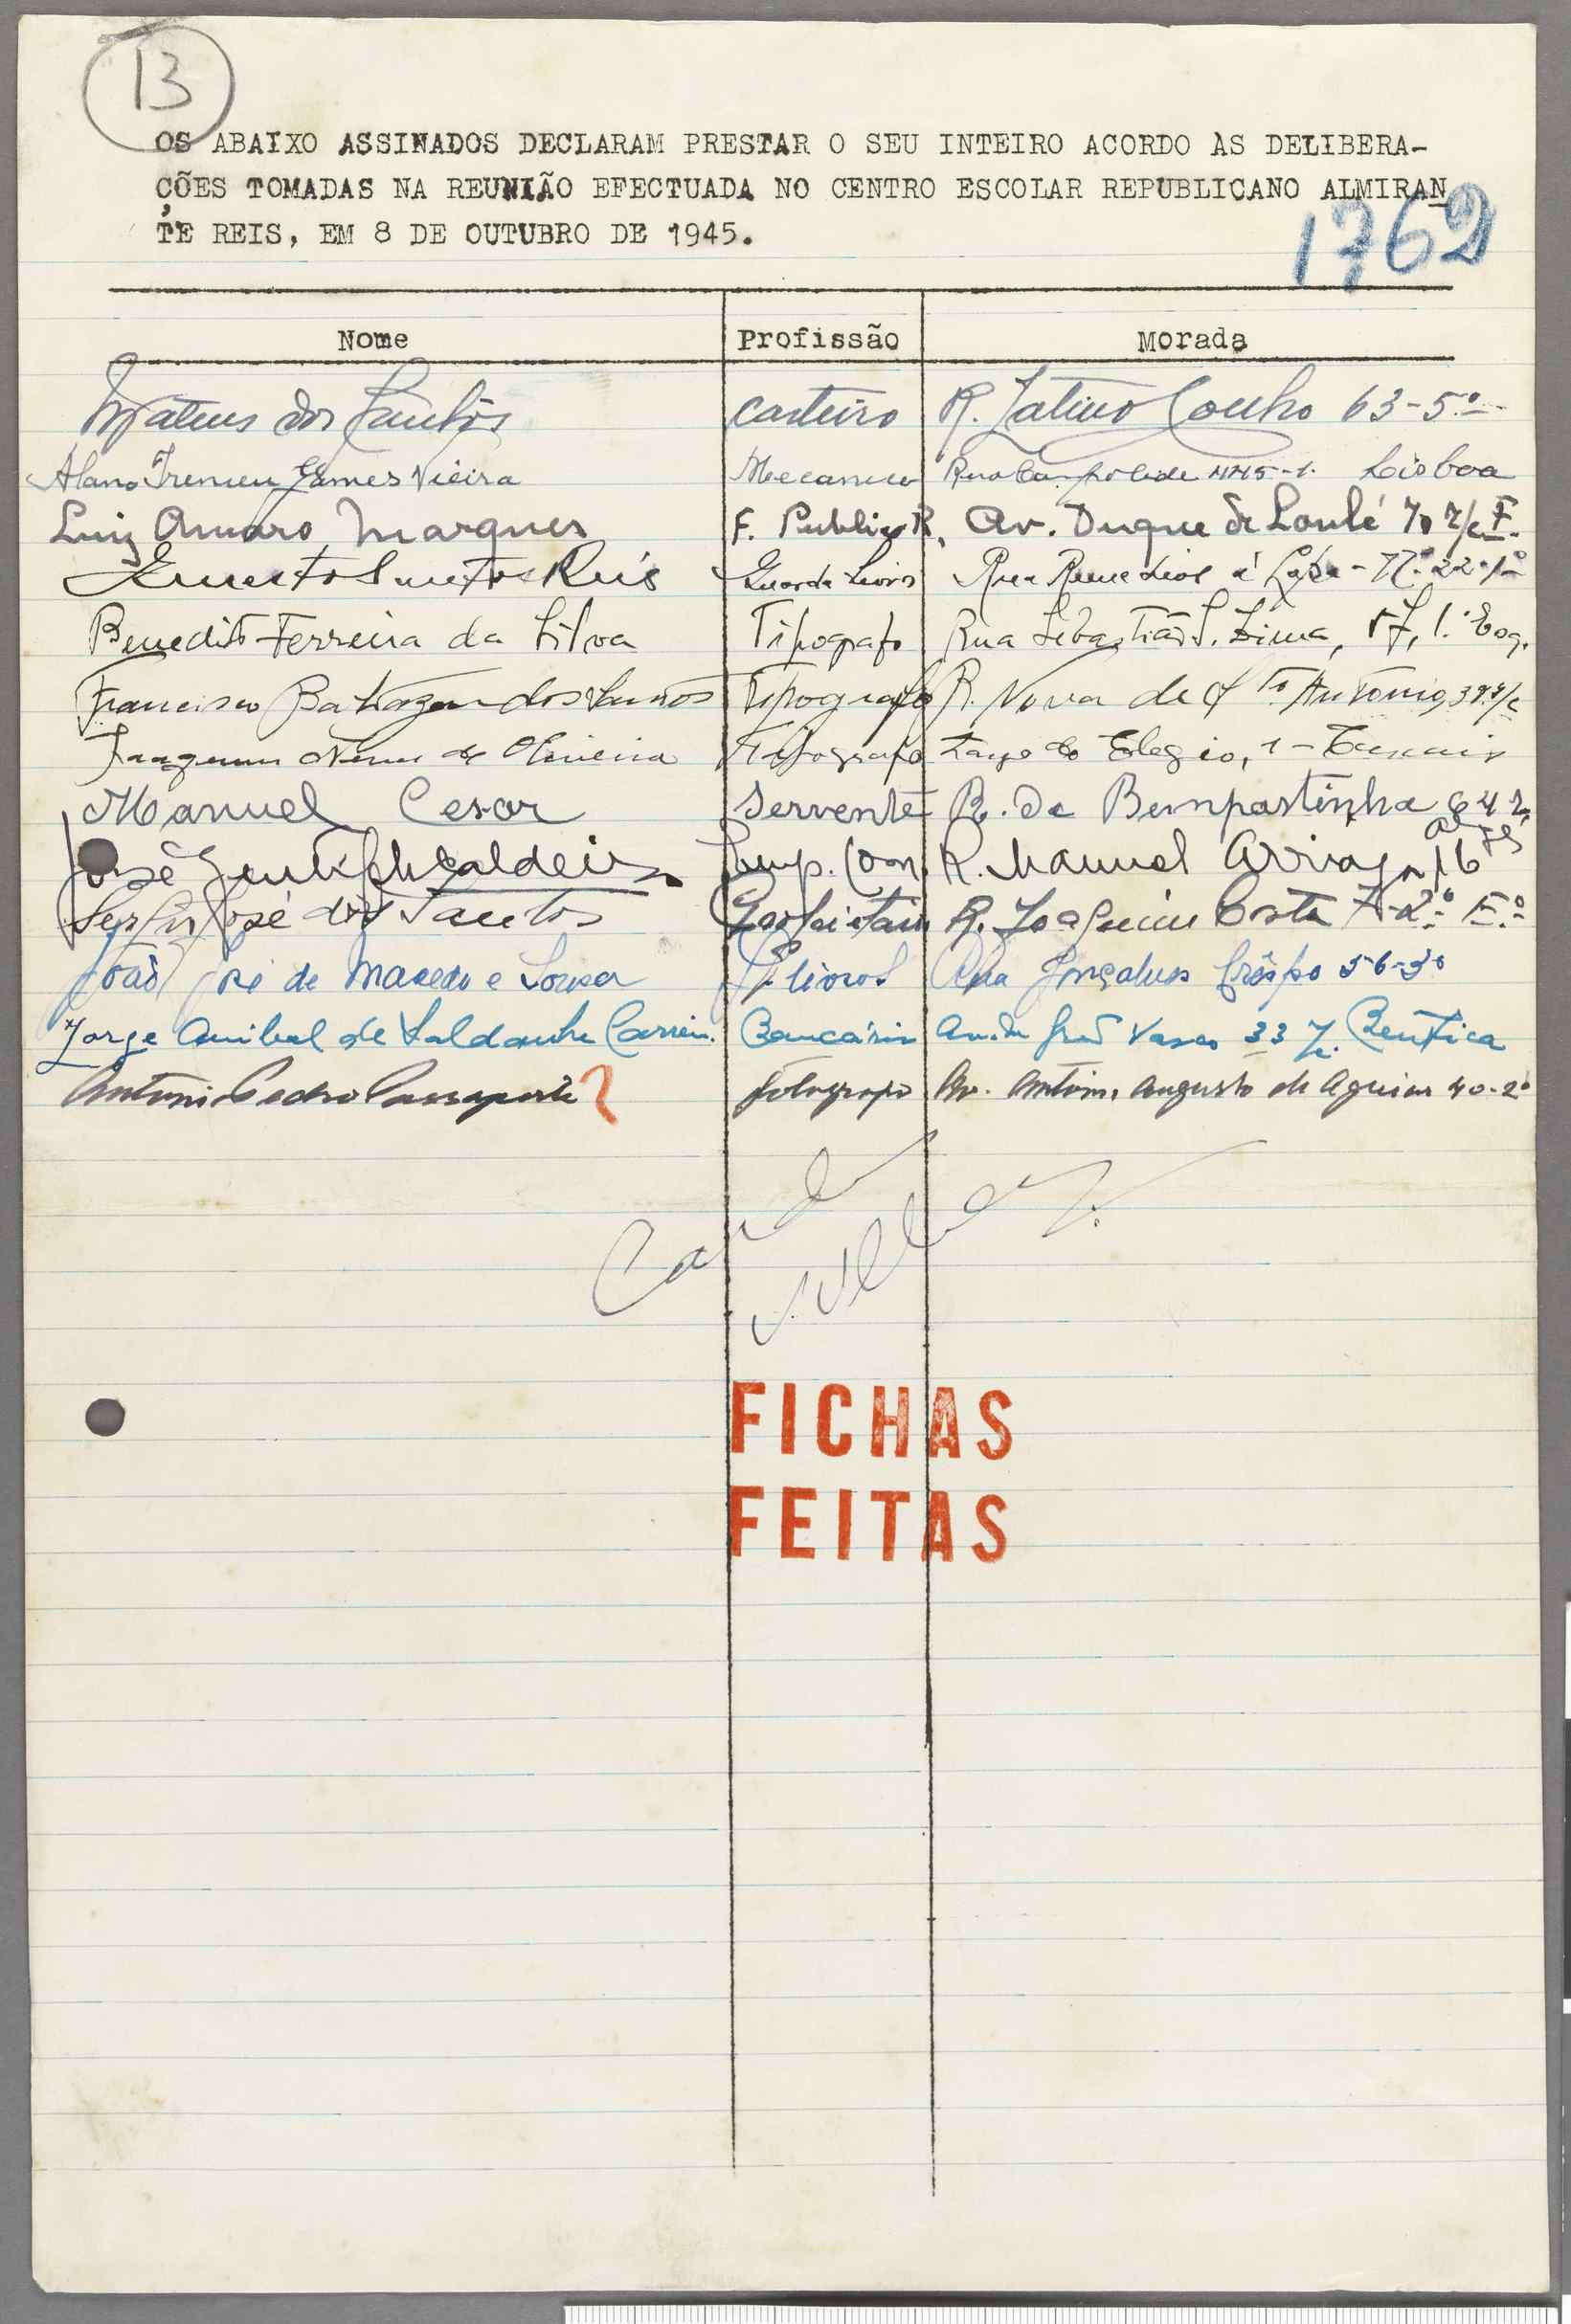 13
OS ABAIXO ASSINADOS DECLARAM PRESTAR O SEU INTEIRO ACORDO ÀS DELIBERA-
ÇÕES TOMADAS NA REUNIÃO EFECTUADA NO CENTRO ESCOLAR REPUBLICANO ALMIRAN
TE REIS, EM 8 DE OUTUBRO DE 1945.
1762
Nome Profissão Morada
Mateus dos Santos carteiro R. Latino Coelho 63-5º
Gomes Vieira Mecanico Rua Campolide Lisboa
Luiz Amaro Marques F. Publico R, Av. Duque de Loulé 70 r/c E.
Ernesto Santos Reis Guarda Livros Rua Remedios á Lapa - 22-1º
Benedito Ferreira da Silva Tipografo Rua Sebastião S. Lima, 1.º Esq.
Francisco Baltazar dos Santos Tipografo R. Nova de Sto Antonio, r/c
Joaquim Nunes de Oliveira Tipografo Largo do Colegio, 1 - Cascais
Manuel Cesar Servente R. da Bempostinha
José Caldeira Emp. Com. R. Manuel Arriaga 16
José dos Santos R. Joaquim Costa 7-2º E.º
João José de Macedo e Sousa G. livros Rua Gonçalves Crêspo 56-3º
Jorge Anibal de Saldanha Carreir. Bancário Grão Vasco 33 Benfica
Antonio Pedro Passaporte fotografo Av. Antonio Augusto de Aguiar 40-2º
FICHAS
FEITAS